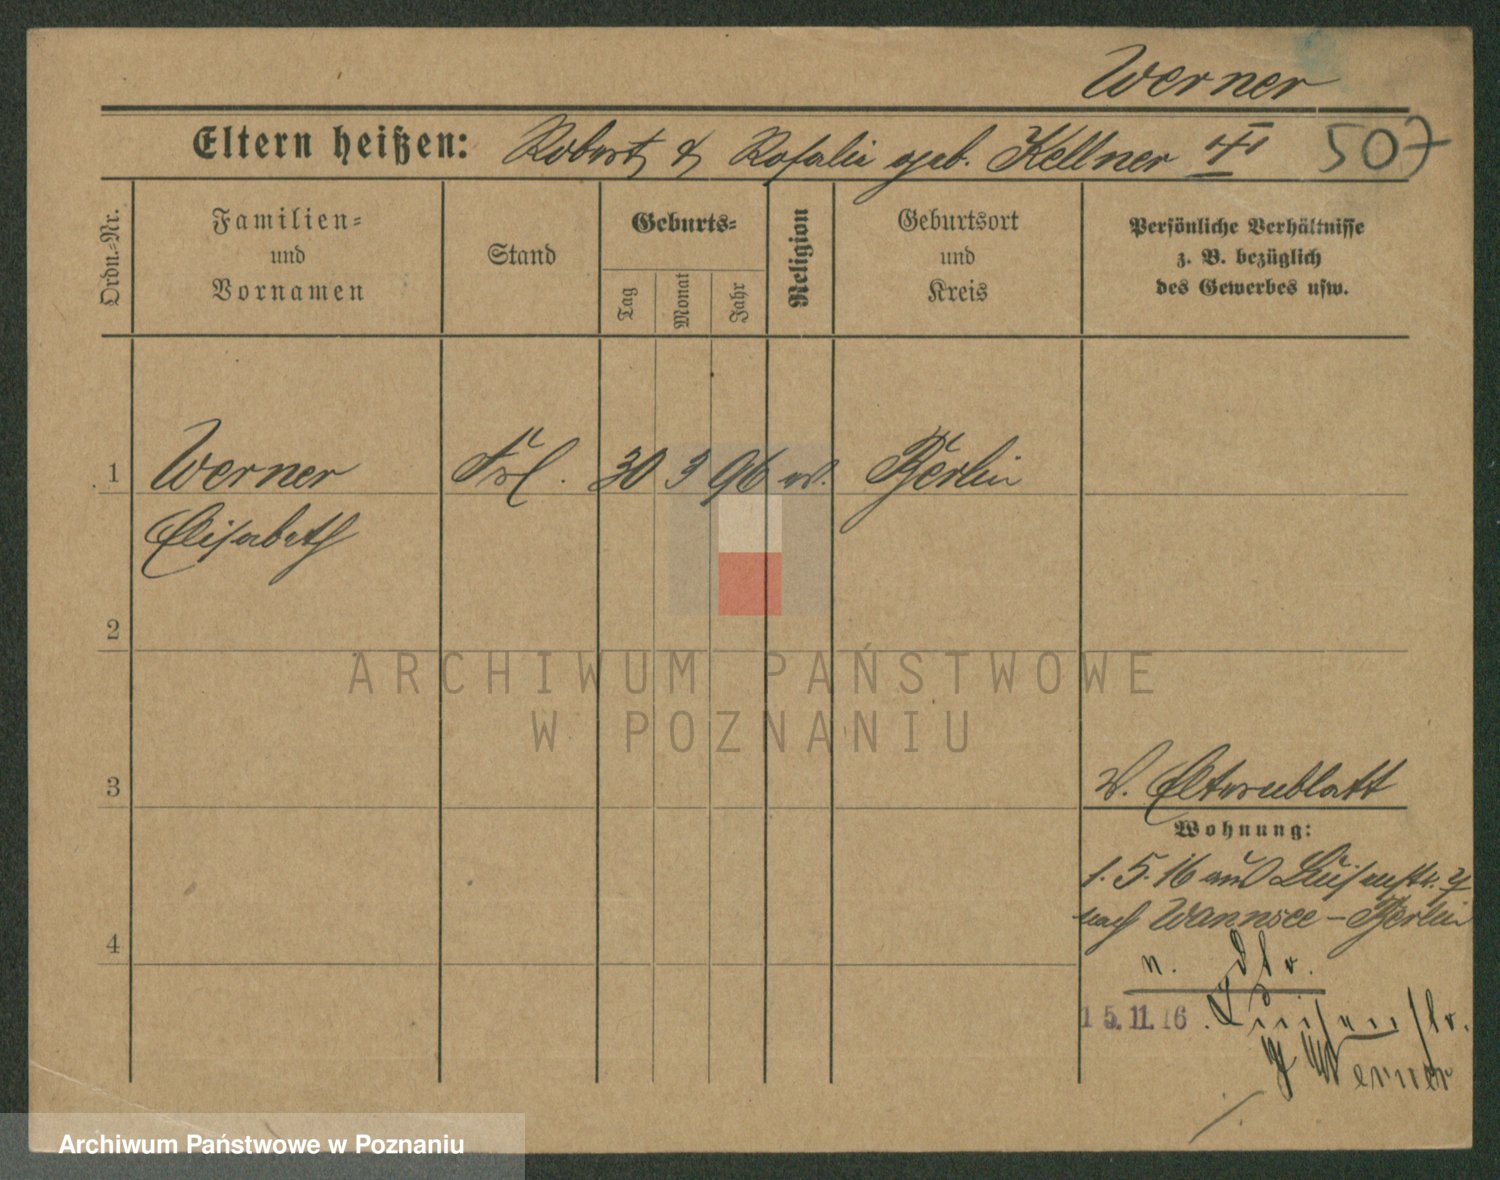 Werner
Eltern heißen: Robert & Rosalie geb. Kellner 507
Ordn.-Nr.
Familien-
und
Vornamen
Stand
Geburts-
Tag
Monat
Jahr
Religion
Geburtsort
und
Kreis
Persönliche Verhältnisse
z. B. bezüglich
des Gewerbes usw.
1 Werner Frl. 30 3 96 ev. Berlin
Elisabeth
2
3
4
s. Elternblatt
Wohnung:
1.5.16 aus Luisenstr. 7
nach Wannsee - Berlin
n.
15.11.16. Luisenstr.
7 Werner
ARCHIWUM PAŃSTWOWE
W POZNANIU
Archiwum Państwowe w Poznaniu